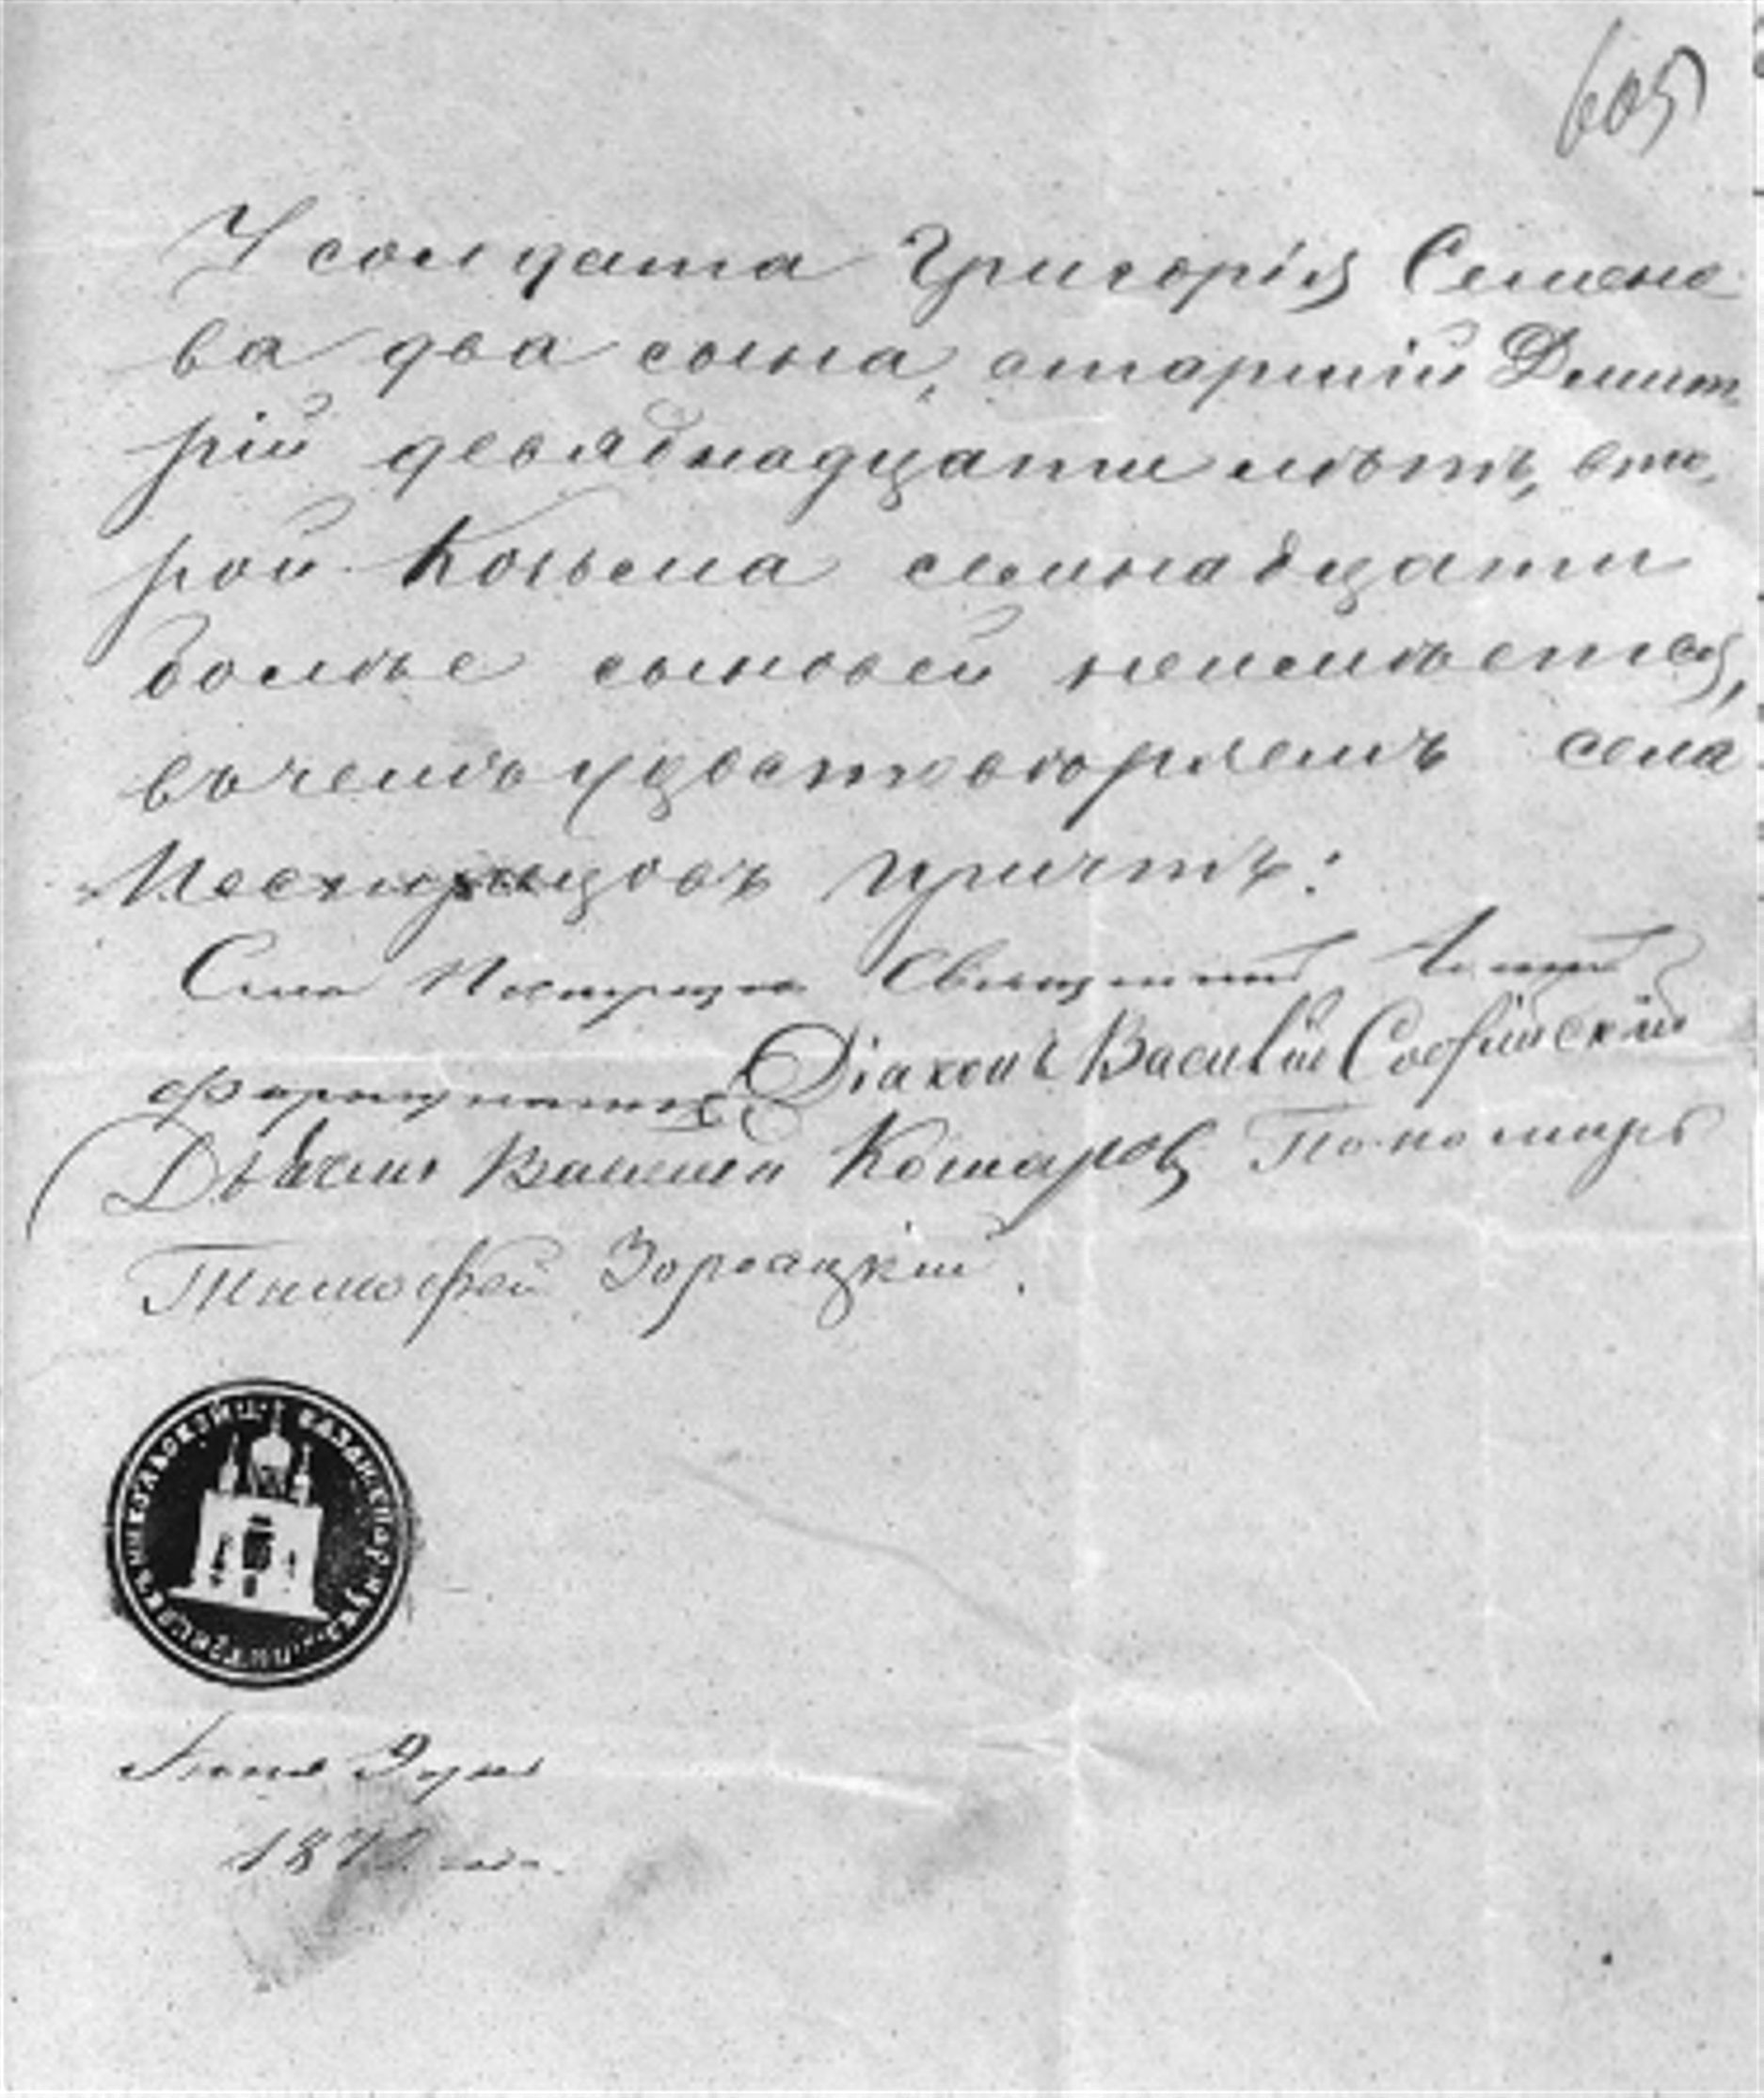 605
У солдата Григорія Семено
ва два сына, старшій Димит
рій девяднадцати лѣтъ, вто
рой Козьма семнадцати
болѣе сыновей неимѣется,
въчемъ удостовѣряемъ села
причтъ:
Села Священникъ
Діаконъ Василій Софійскій
Дьячекъ Василій Комаровъ Пономарь
Тимофей
Іюня 2 дня
187 года.